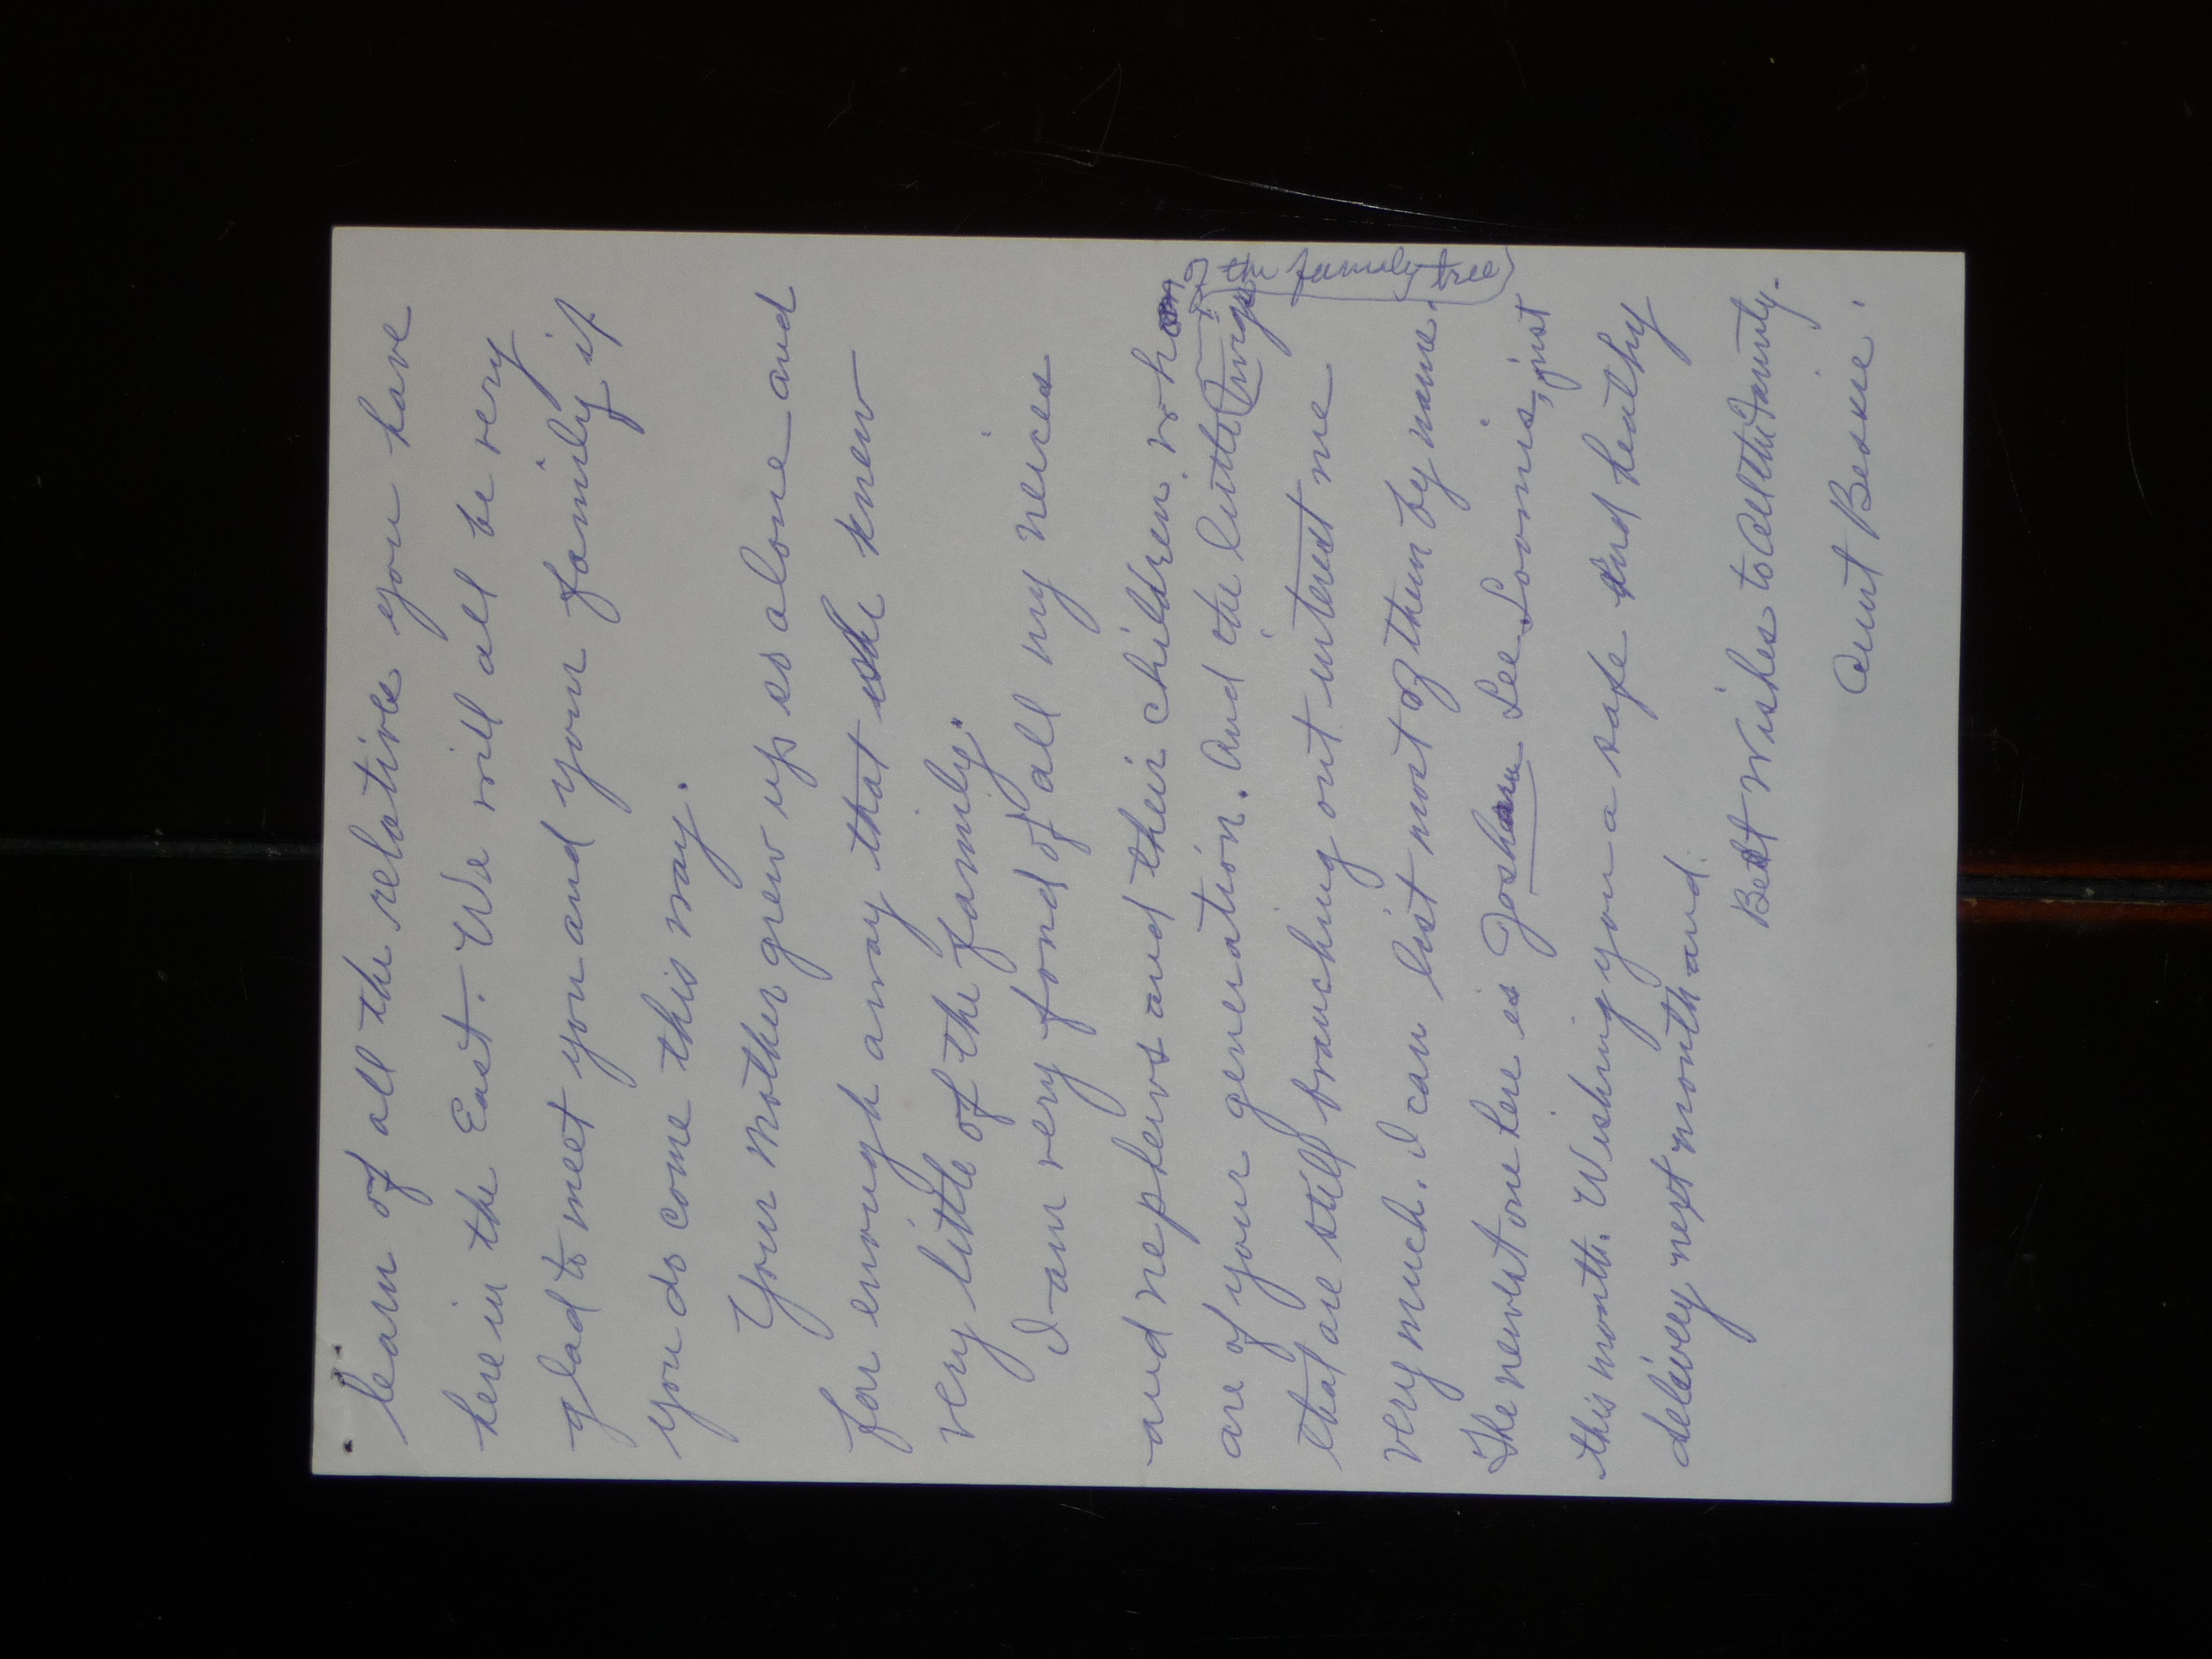 learn of all the relatives you have
here in the East. We will all be very
glad to meet you and your family if
you do come this way.
Your mother grew up so alone and
far enough away that she knew
very little of the family.
I am very fond of all my neices
and nephews and their children who
are of your generation. And the little twigs
on the family tree
that are still branching out interest me
very much. I can list most of them by name.
The newest one here is Lee Loomis, just
this month. Wishing you a safe and healthy
delivery next month and
Best Wishes to all the Family-
Aunt Bessie.